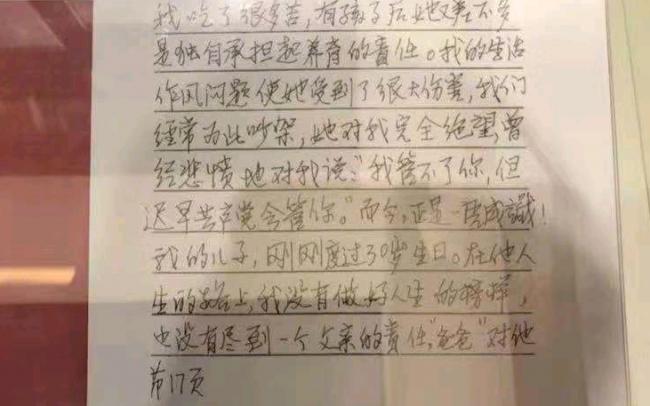 我吃了很多苦，有孩子后她差不多
是独自承担起养育的责任。我的生活
作风问题使她受到了很大伤害，我们
经常为此吵架，她对我完全绝望，曾
经悲愤地对我说：“我管不了你，但
迟早共产党会管你。”而今，正是一语成谶！
我的儿子，刚刚度过30岁生日。在他人
生的路上，我没有做好人生的榜样，
也没有尽到一个父亲的责任，“爸爸”对他
第17页